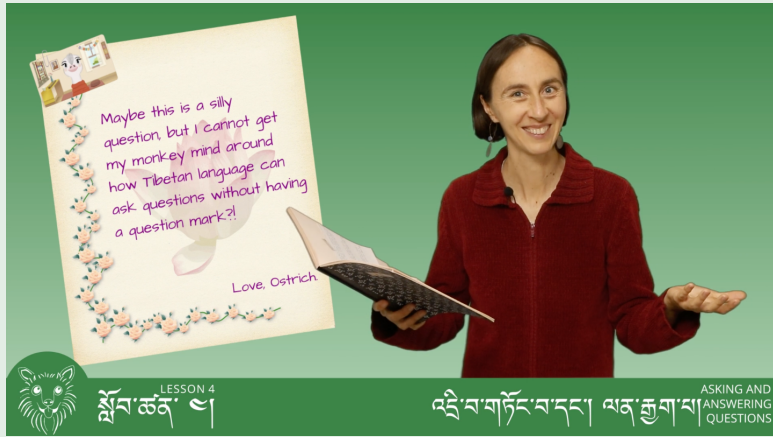 Maybe this is a silly
question, but I cannot get
my monkey mind around
how Tibetan language can
ask questions without having
a question mark?!
Love, Ostrich.
LESSON 4
སློབ་ཚན་ ༤།
འདྲི་བ་གཏོང་བ་དང་། ལན་རྒྱག་པ།
ASKING AND
ANSWERING
QUESTIONS